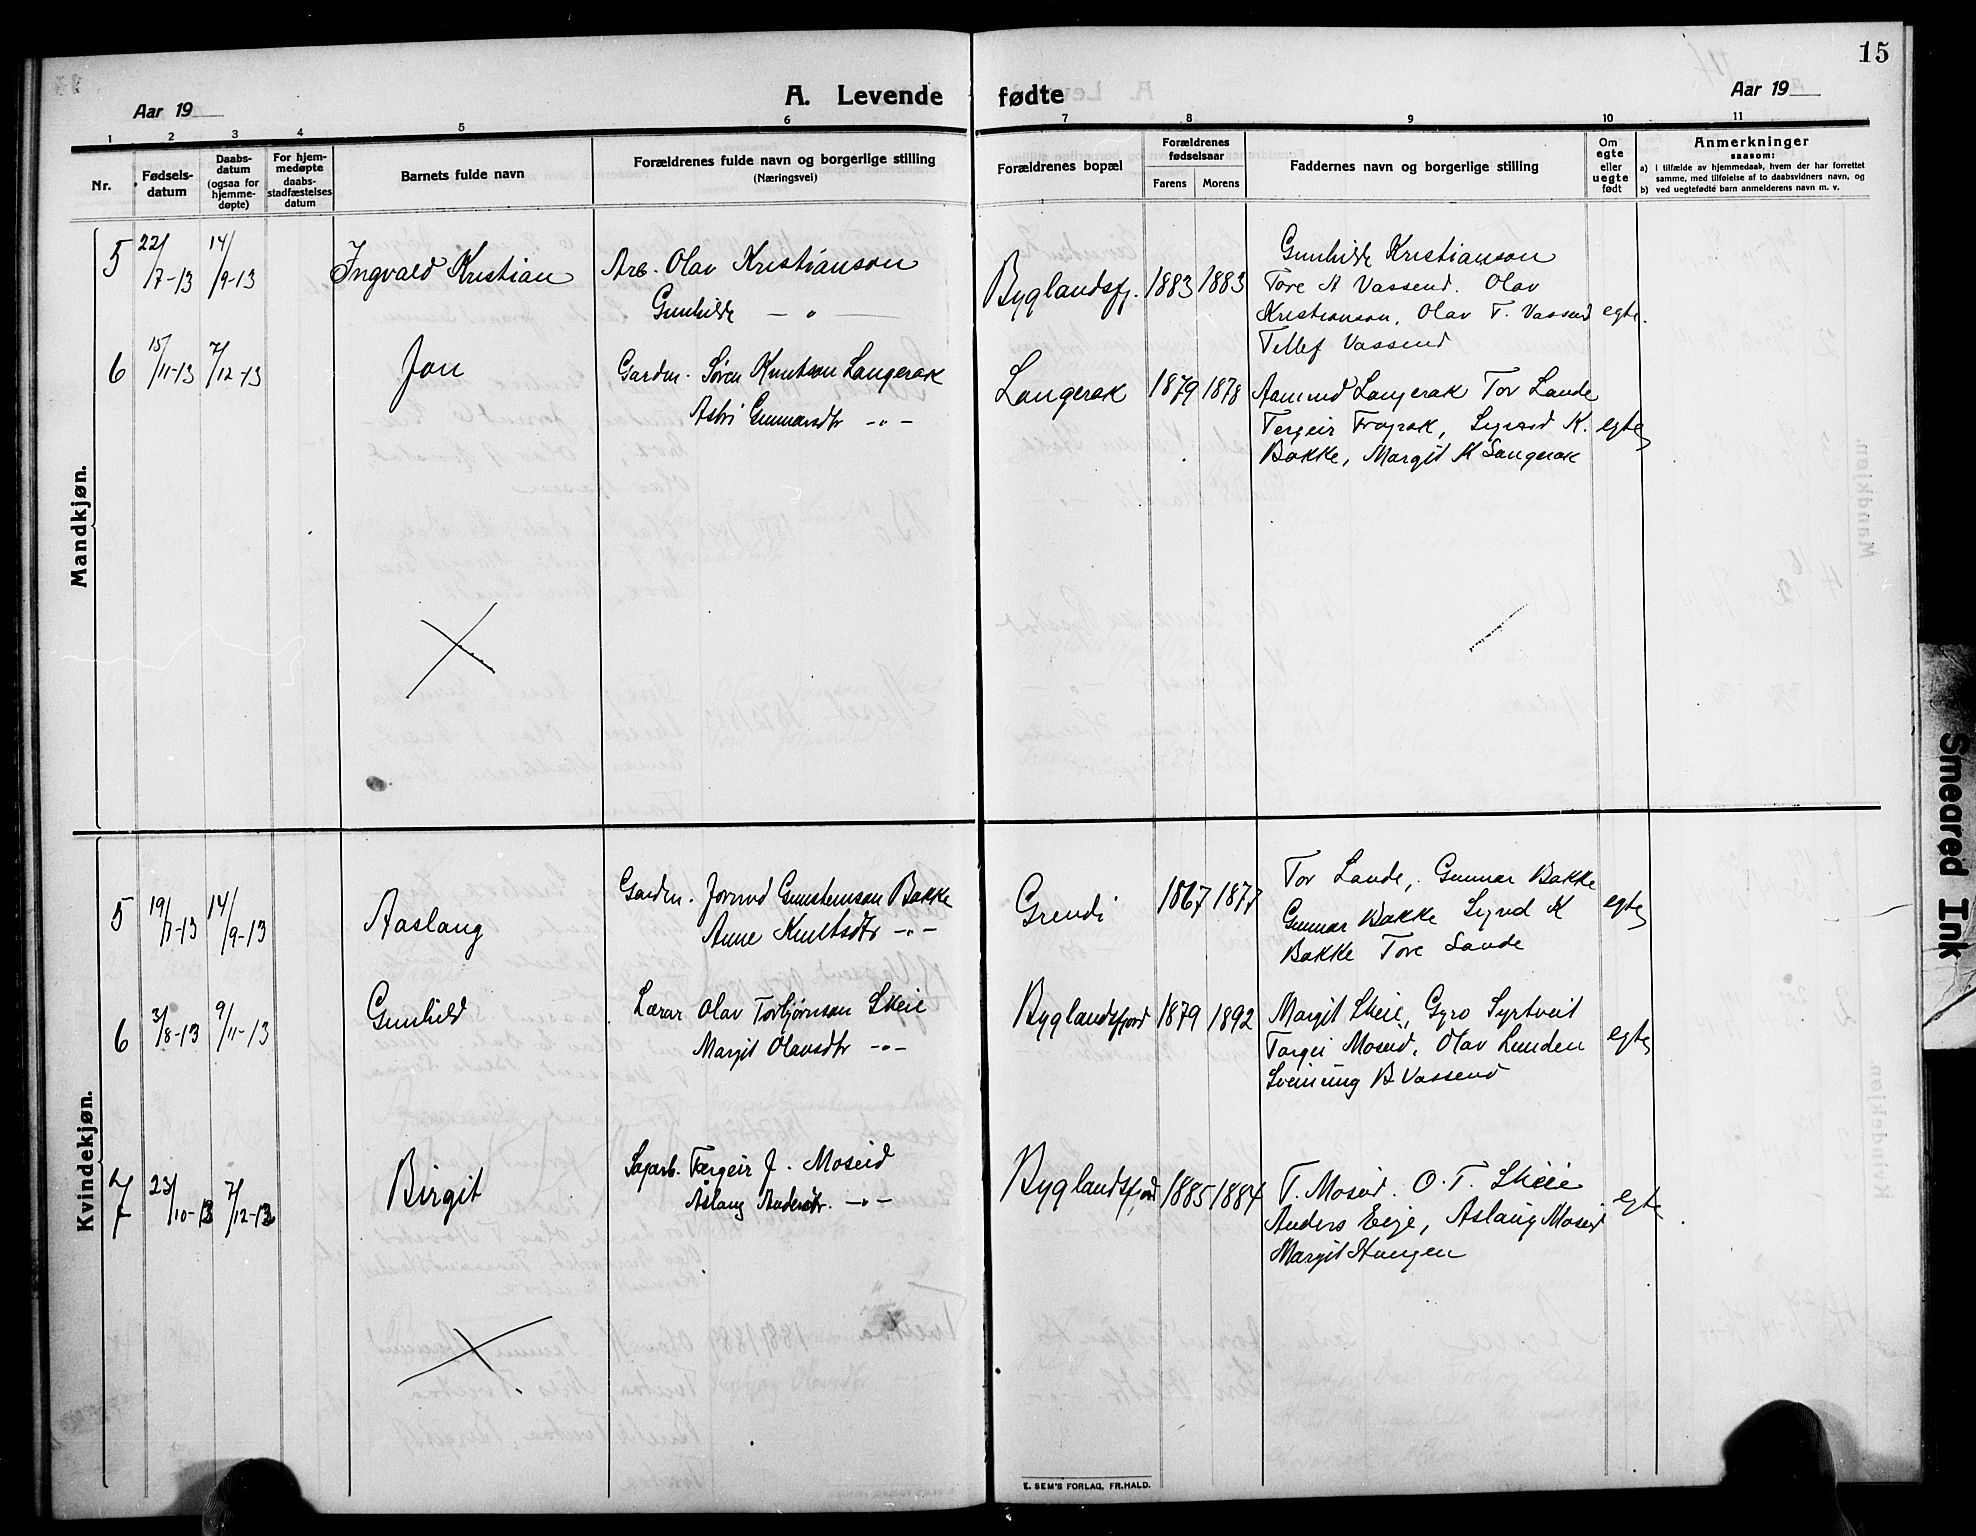 15
Aar 19
A. Levende fødte
Aar 19
1 2 3 4 5 6 7 8 9 10 11
Nr.
Fødsels-
datum
Daabs-
datum
(ogsaa for
hjemme-
døpte)
For hjem-
medøpte
daabs-
stadfæstelses
datum
Barnets fulde navn
Forældrenes fulde navn og borgerlige stilling
(Næringsvei)
Forældrenes bopæl
Forældrenes
fødselsaar
Farens Morens
Faddernes navn og borgerlige stilling
Om
egte
eller
uegte
født
Anmerkninger
saasom:
a) i tilfælde av hjemmedaab, hvem der har forrettet
samme, med tilføielse af to daabsvidners navn, og
b) ved uegtefødte barn anmelderens navn m. v.
Mandkjøn.
5 22/7-13 14/9-13 Ingvald Kristian
Arb. Olav Kristianson
Gunhilde — " —
Byglandsfj. 1883 1883
Gunhilde Kristianson
Tore A Vassend. Olav
Kristianson, Olav T. Vassend
Tellef Vassend
egte.
6 15/11-13 7/12-13 Jon
Gardm. Søren Knutson Langerak
Astri Gunnarsdtr -"-
Langerak 1879 1878
Aamund Langerak Tov Lande
Tergeir Frøyrak, Sigurd K.
Bakke, Margit K Langerak
egte
Kvindekjøn.
5 19/7-13 14/9-13 Aaslaug
Gardm. Jorund Gunsteinson Bakke
Anne Knutsdtr -"-
Grendi 1867 1877
Tor Lande, Gunnar Bakke
Gunnar Bakke Sigurd K
Bakke Tore Lande
egte
6 3/8-13 9/11-13 Gunhild
Lærar Olav Torbjørnson Skeie
Margit Olavsdtr -"-
Byglandsfjord 1879 1892
Margit Skeie, Gyro Syrtveit
Torgei Moseid. Olav Lunden
Sveinung B Vassend
egte
7 23/10-13 7/12-13 Birgit
Sagarb. Tærgeir J. Moseid
Åslaug Andersdtr. -"-
Byglandsfjord 1885 1884
T. Moseid. O. T. Skeie
Anders Eieje, Aslaug Moseid
Margit Haugen
egte
E. SEM'S FORLAG, FR.HALD.
Smeared Ink